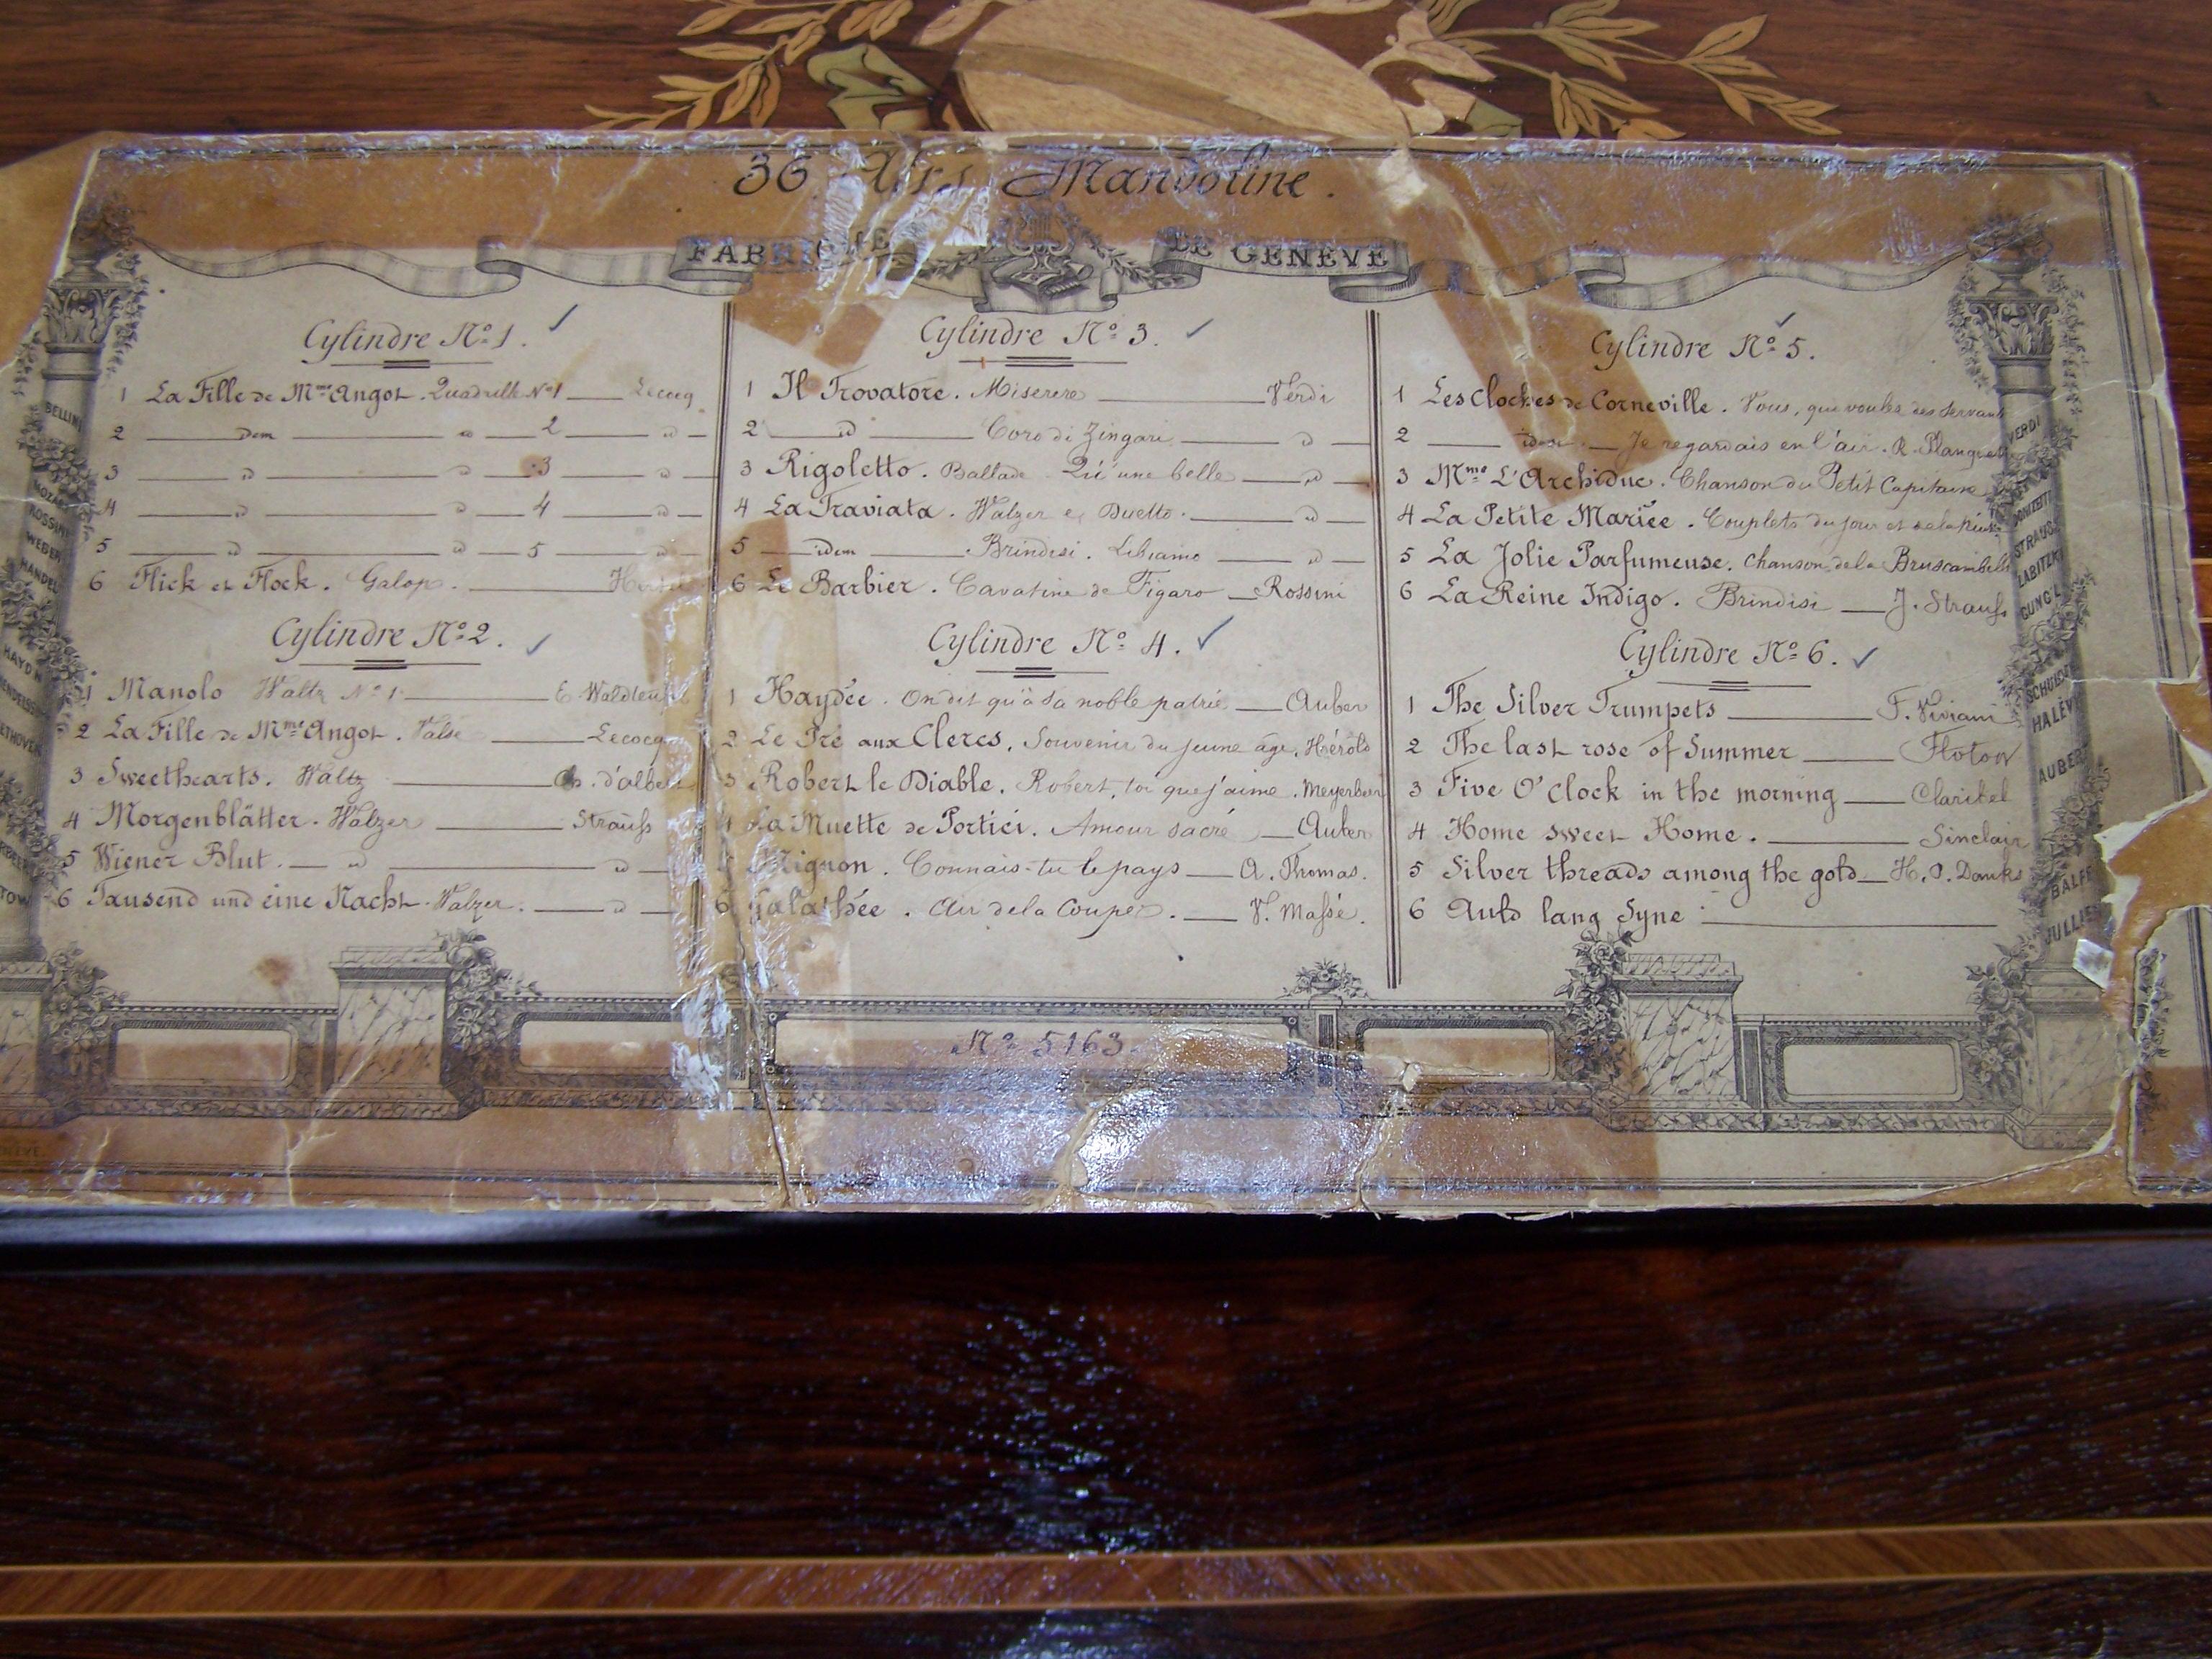 36 Airs Mandoline.
FABRIQUE DE GENEVE
Cylindre No 1.
1 La Fille de Mme Angot. Quadrille No 1 Lecocq
2 idem id 2 id
3 id id 3 id
4 id id 4 id
5 id id 5 id
6 Flick et Flock. Galop.
Cylindre No 2.
1 Manolo Waltz No 1 E. Waldteufel
2 La Fille de Mme Angot. Valse Lecocq
3 Sweethearts. Waltz Ch. d'albert
4 Morgenblätter. Walzer Strauss
5 Wiener Blut. id id
6 Tausend und eine Nacht. Walzer. id
Cylindre No 3.
1 Il Trovatore. Miserere Verdi
2 id Coro di Zingari id
3 Rigoletto. Ballade Qu'une belle id
4 La Traviata. Walzer e Duetto. id
5 idem Brindisi. Libiamo id
6 Le Barbier. Cavatine de Figaro Rossini
Cylindre No 4.
1 Haydée. On dit qu'à sa noble patrie Auber
2 Le Pré aux Clercs. Souvenir du jeune âge. Hérold
3 Robert le Diable. Robert, toi que j'aime. Meyerbeer
4 La Muette de Portici. Amour sacré Auber
5 Mignon. Connais-tu le pays A. Thomas.
6 Galathée. Air de la Coupe. V. Massé.
Cylindre No 5.
1 Les Cloches de Corneville. Vous, qui voulez des servant
2 idem. Je regardais en l'air. R. Planquett
3 Mme L'Archiduc. Chanson du Petit Capitaine
4 La Petite Mariée. Couplets du jour et de la Nuit
5 La Jolie Parfumeuse. Chanson de la Bruscambille
6 La Reine Indigo. Brindisi J. Strauss
Cylindre No 6.
1 The Silver Trumpets F. Viviani
2 The last rose of Summer Flotow
3 Five O'Clock in the morning Claribel
4 Home sweet Home. Sinclair
5 Silver threads among the gold H. P. Danks
6 Auld lang Syne
No 5163.
BELLINI
MOZART
ROSSINI
WEBER
HANDEL
HAYDN
VERDI
DONIZETTI
STRAUSS
LABITZKI
GUNG'L
HALÉV
AUBER
BALFE
JULLIEN